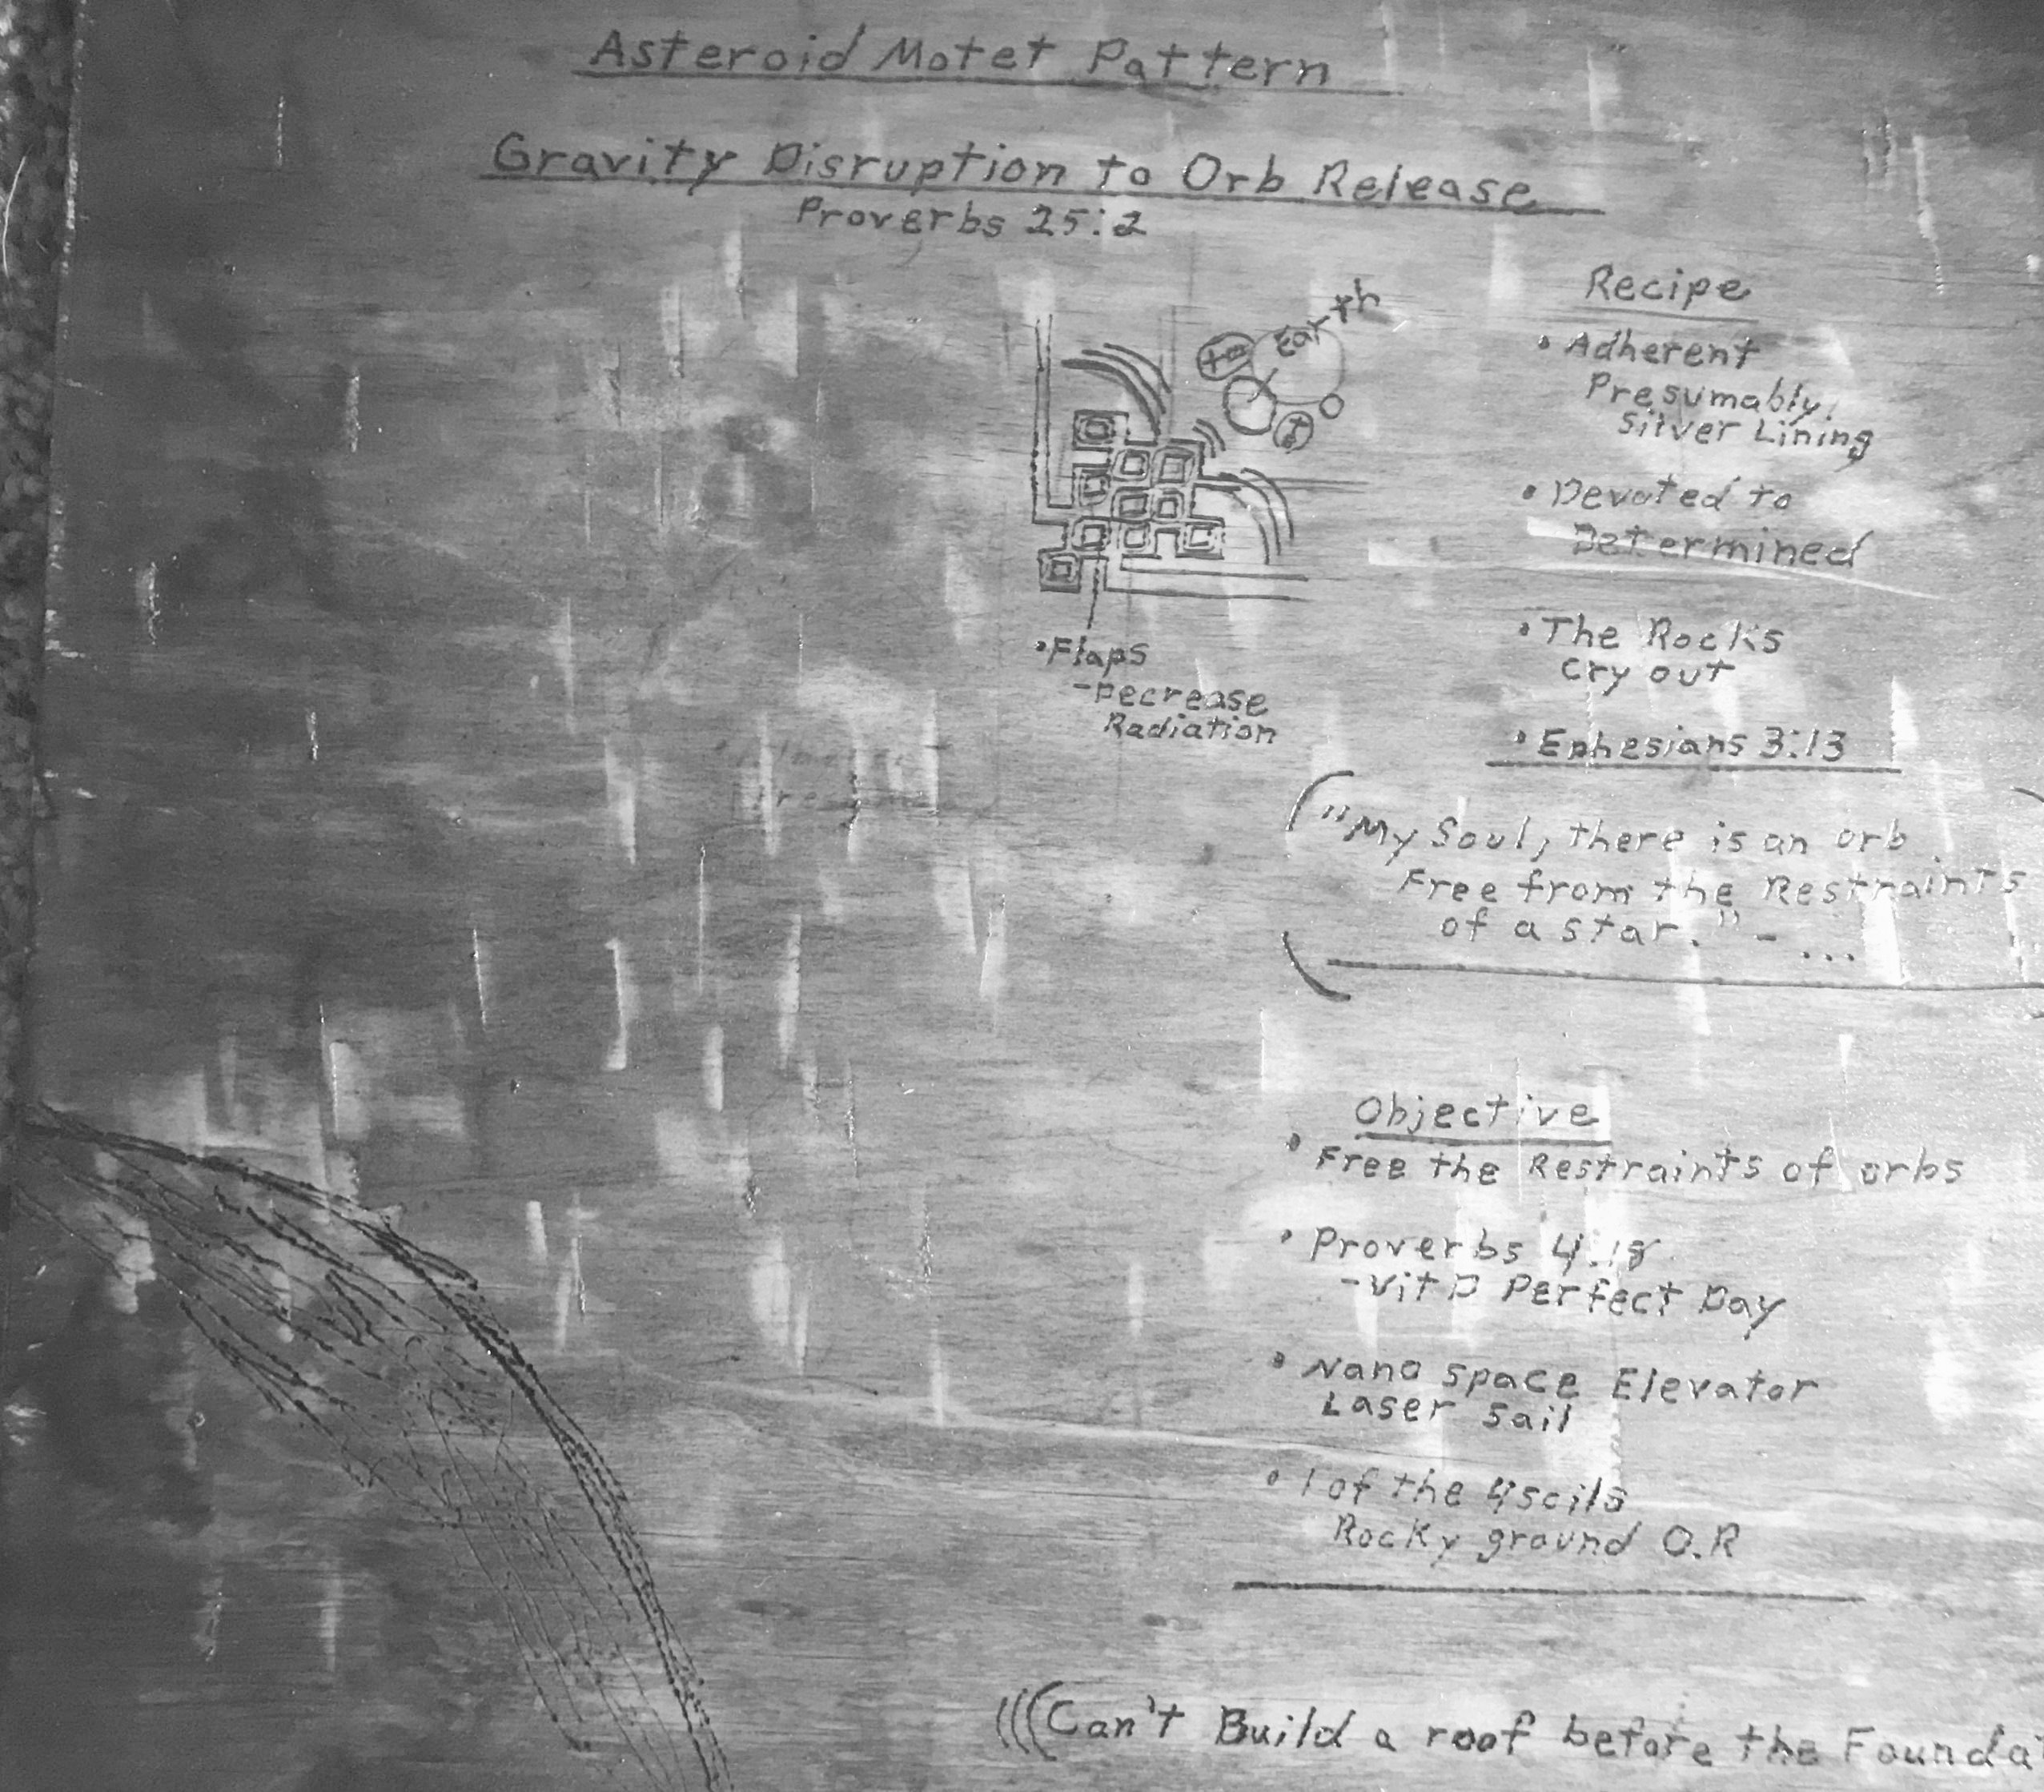 Asteroid Motet Pattern
Gravity Disruption to Orb Release
Proverbs 25:2
Earth
Recipe
• Adherent
Presumably,
Silver Lining
• Devoted to
Determined
• The Rocks
cry out
• Flaps
- Decrease
Radiation
• Ephesians 3:13
("My Soul, there is an orb
Free from the Restraints
of a star." - ...
Objective
• Free the Restraints of orbs
• Proverbs 4:18
- Vit D Perfect Day
• Nano space Elevator
Laser Sail
• 1 of the 4 soils
Rocky ground O.R
(((Can't Build a roof before the Founda